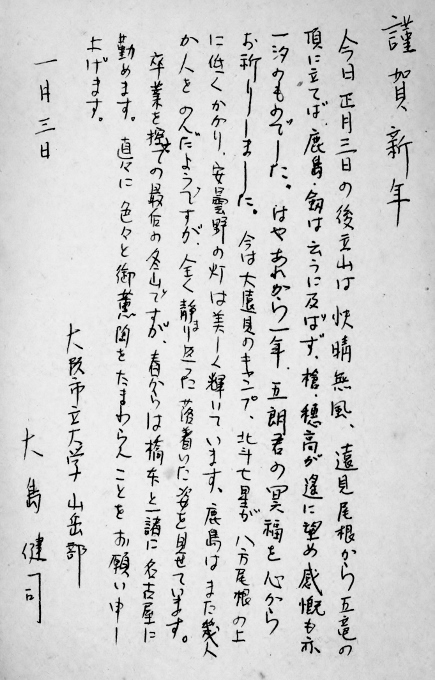 謹賀新年
今日 正月三日の後立山は 快晴無風、遠見尾根から五竜の
頂に立てば 鹿島・剱は云うに及ばず、槍・穂高が遙に望め感慨も亦
一汐のものでした。はやあれから一年、五朗君の冥福を心から
お祈りしました。今は大遠見のキャンプ、北斗七星が八方尾根の上
に低くかかり、安曇野の灯は美しく輝いています。鹿島はまた幾人
か人をのんだようですが、全く静まり返った落着いた姿を見せています。
卒業を控えての最后の冬山ですが、春からは橋本と一諸に名古屋に
勤めます。直々に色々と御薫陶をたまわらんことをお願い申し
上げます。
一月三日
大阪市立大学 山岳部
大島健司